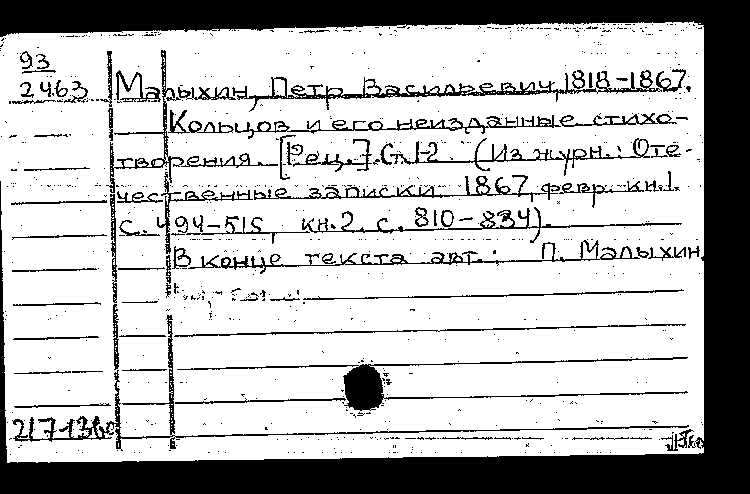 93
2463 Малыхин, Петр Васильевич, 1818-1867.
Кольцов и его неизданные стихо-
творения. [Рец.]. Ст. 1-2. (Из журн.: Оте-
чественные записки 1867, февр. кн.1.
с. 494-515, кн.2. с. 810-834).
В конце текста авт.: П. Малыхин.